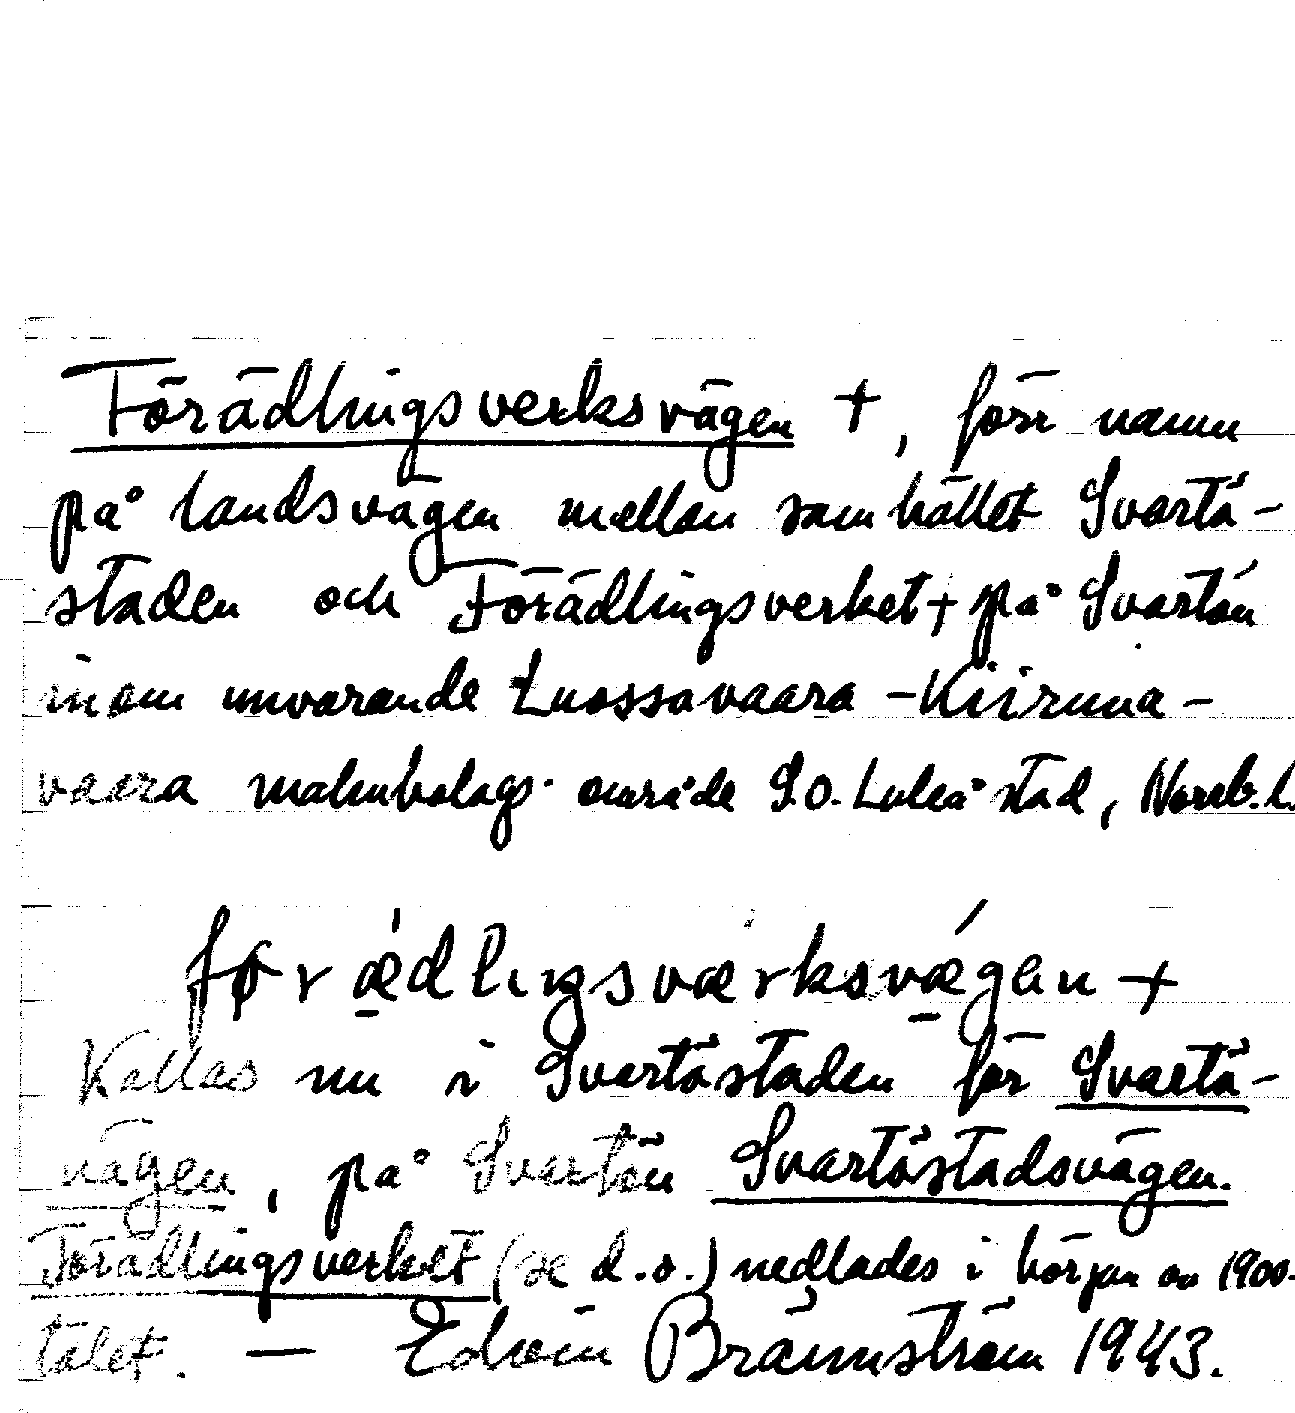 Förädlingsverksvägen +, förr namn
på landsvägen mellan samhället Svartö-
staden och Förädlingsverket + på Svartön
inom nuvarande Luossavaara-Kiiruna-
vaara malmbolags område S.O. Luleå stad, Norrb. l.
førǽdliŋsværksvǽgən +
Kallas nu i Svartöstaden för Svartö-
vägen, på Svartön Svartöstadsvägen.
Förädlingsverket (se d.o.) nedlades i början av 1900-
talet. — Edvin Brännström 1943.